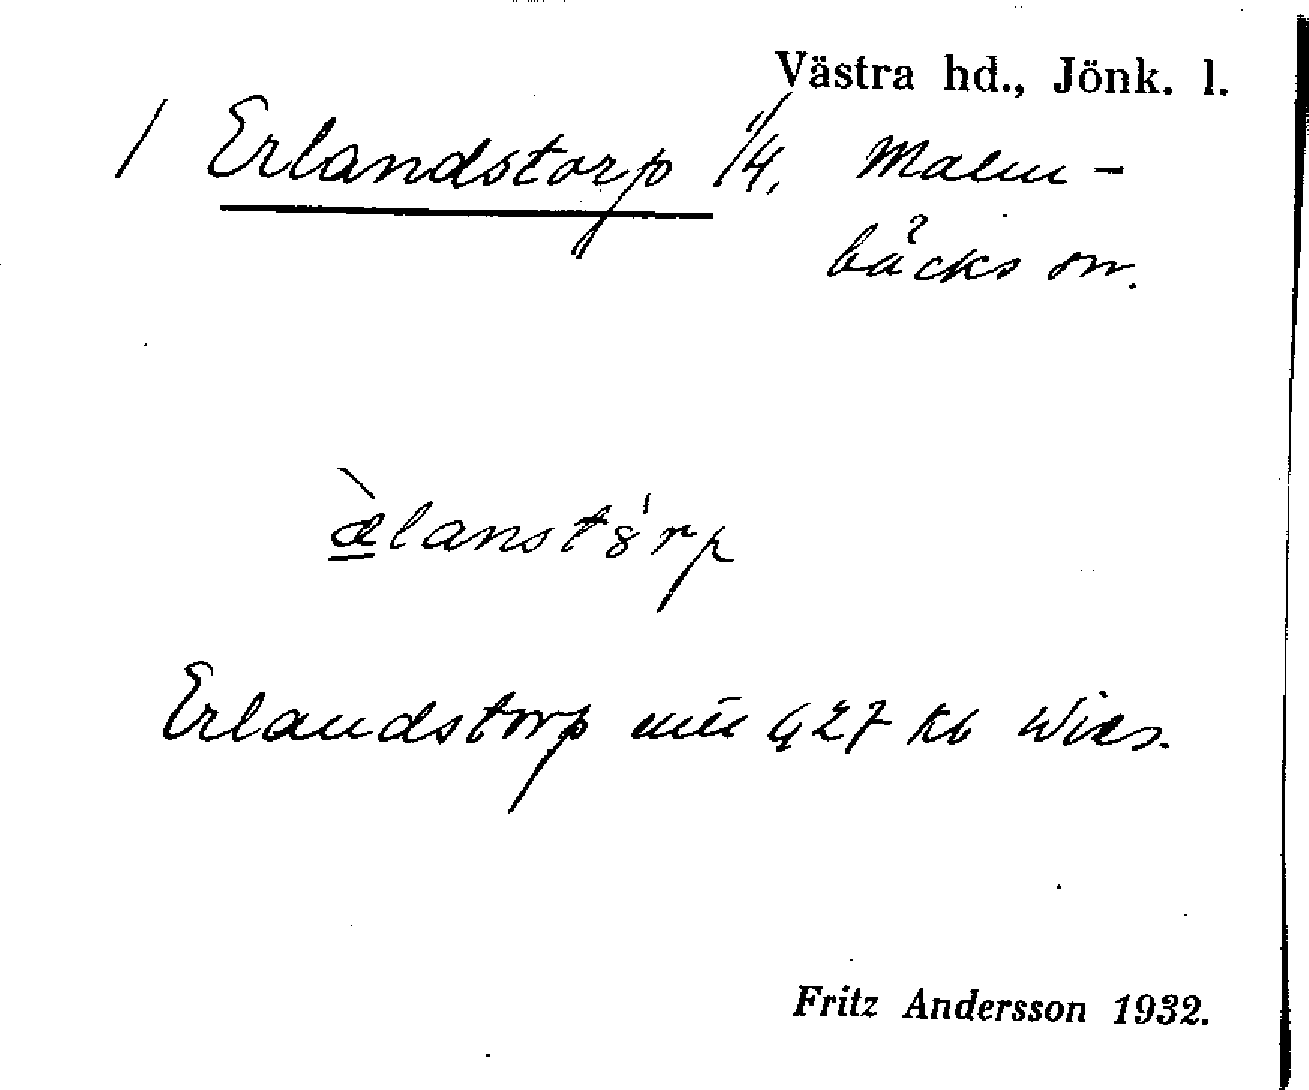 Västra hd., Jönk. l.
/ Erlandstorp 1/4, Malm-
bäcks sn.
æ̀lanstȣ́rp
Erlandstorp 427 kb Wies.
Fritz Andersson 1932.